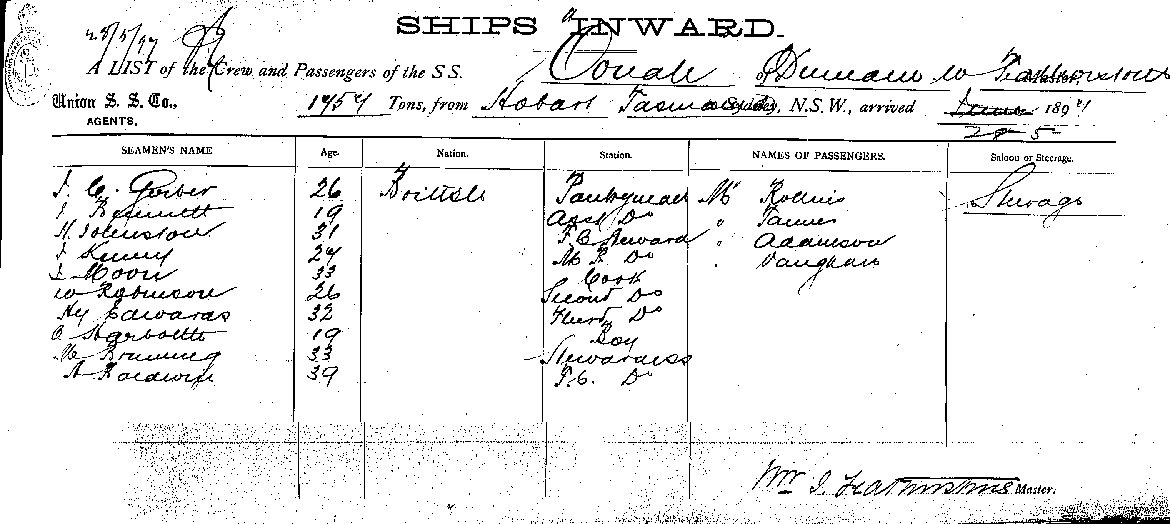 28/5/97
SHIPS INWARD.
A LIST of the Crew and Passengers of the S.S. Oonah of Dunedin W
Union S. S. Co., Tons, from Hobart Tasmania, N.S.W., arrived 1897
AGENTS. 28 5
SEAMEN'S NAME Age. Nation. Station. NAMES OF PASSENGERS. Saloon or Steerage.
26 British Pantryman Mr Rollins Steerage
J Bennett 19 Asst Do " Tanner
H Johnston 31 F C Steward " Adamson
J Kenny 24 Do " Vaughan
J Moon 33 Cook
W Robinson 26 Second Do
Hy Edwards 32 Third Do
19 Boy
33 Stewardess
A Baldwin 39 Do
Wm J Master.